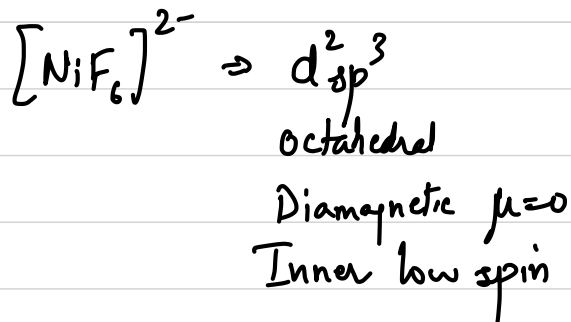 [NiF₆]²⁻ ⇒ d²sp³
octahedral
Diamagnetic μ=0
Inner low spin